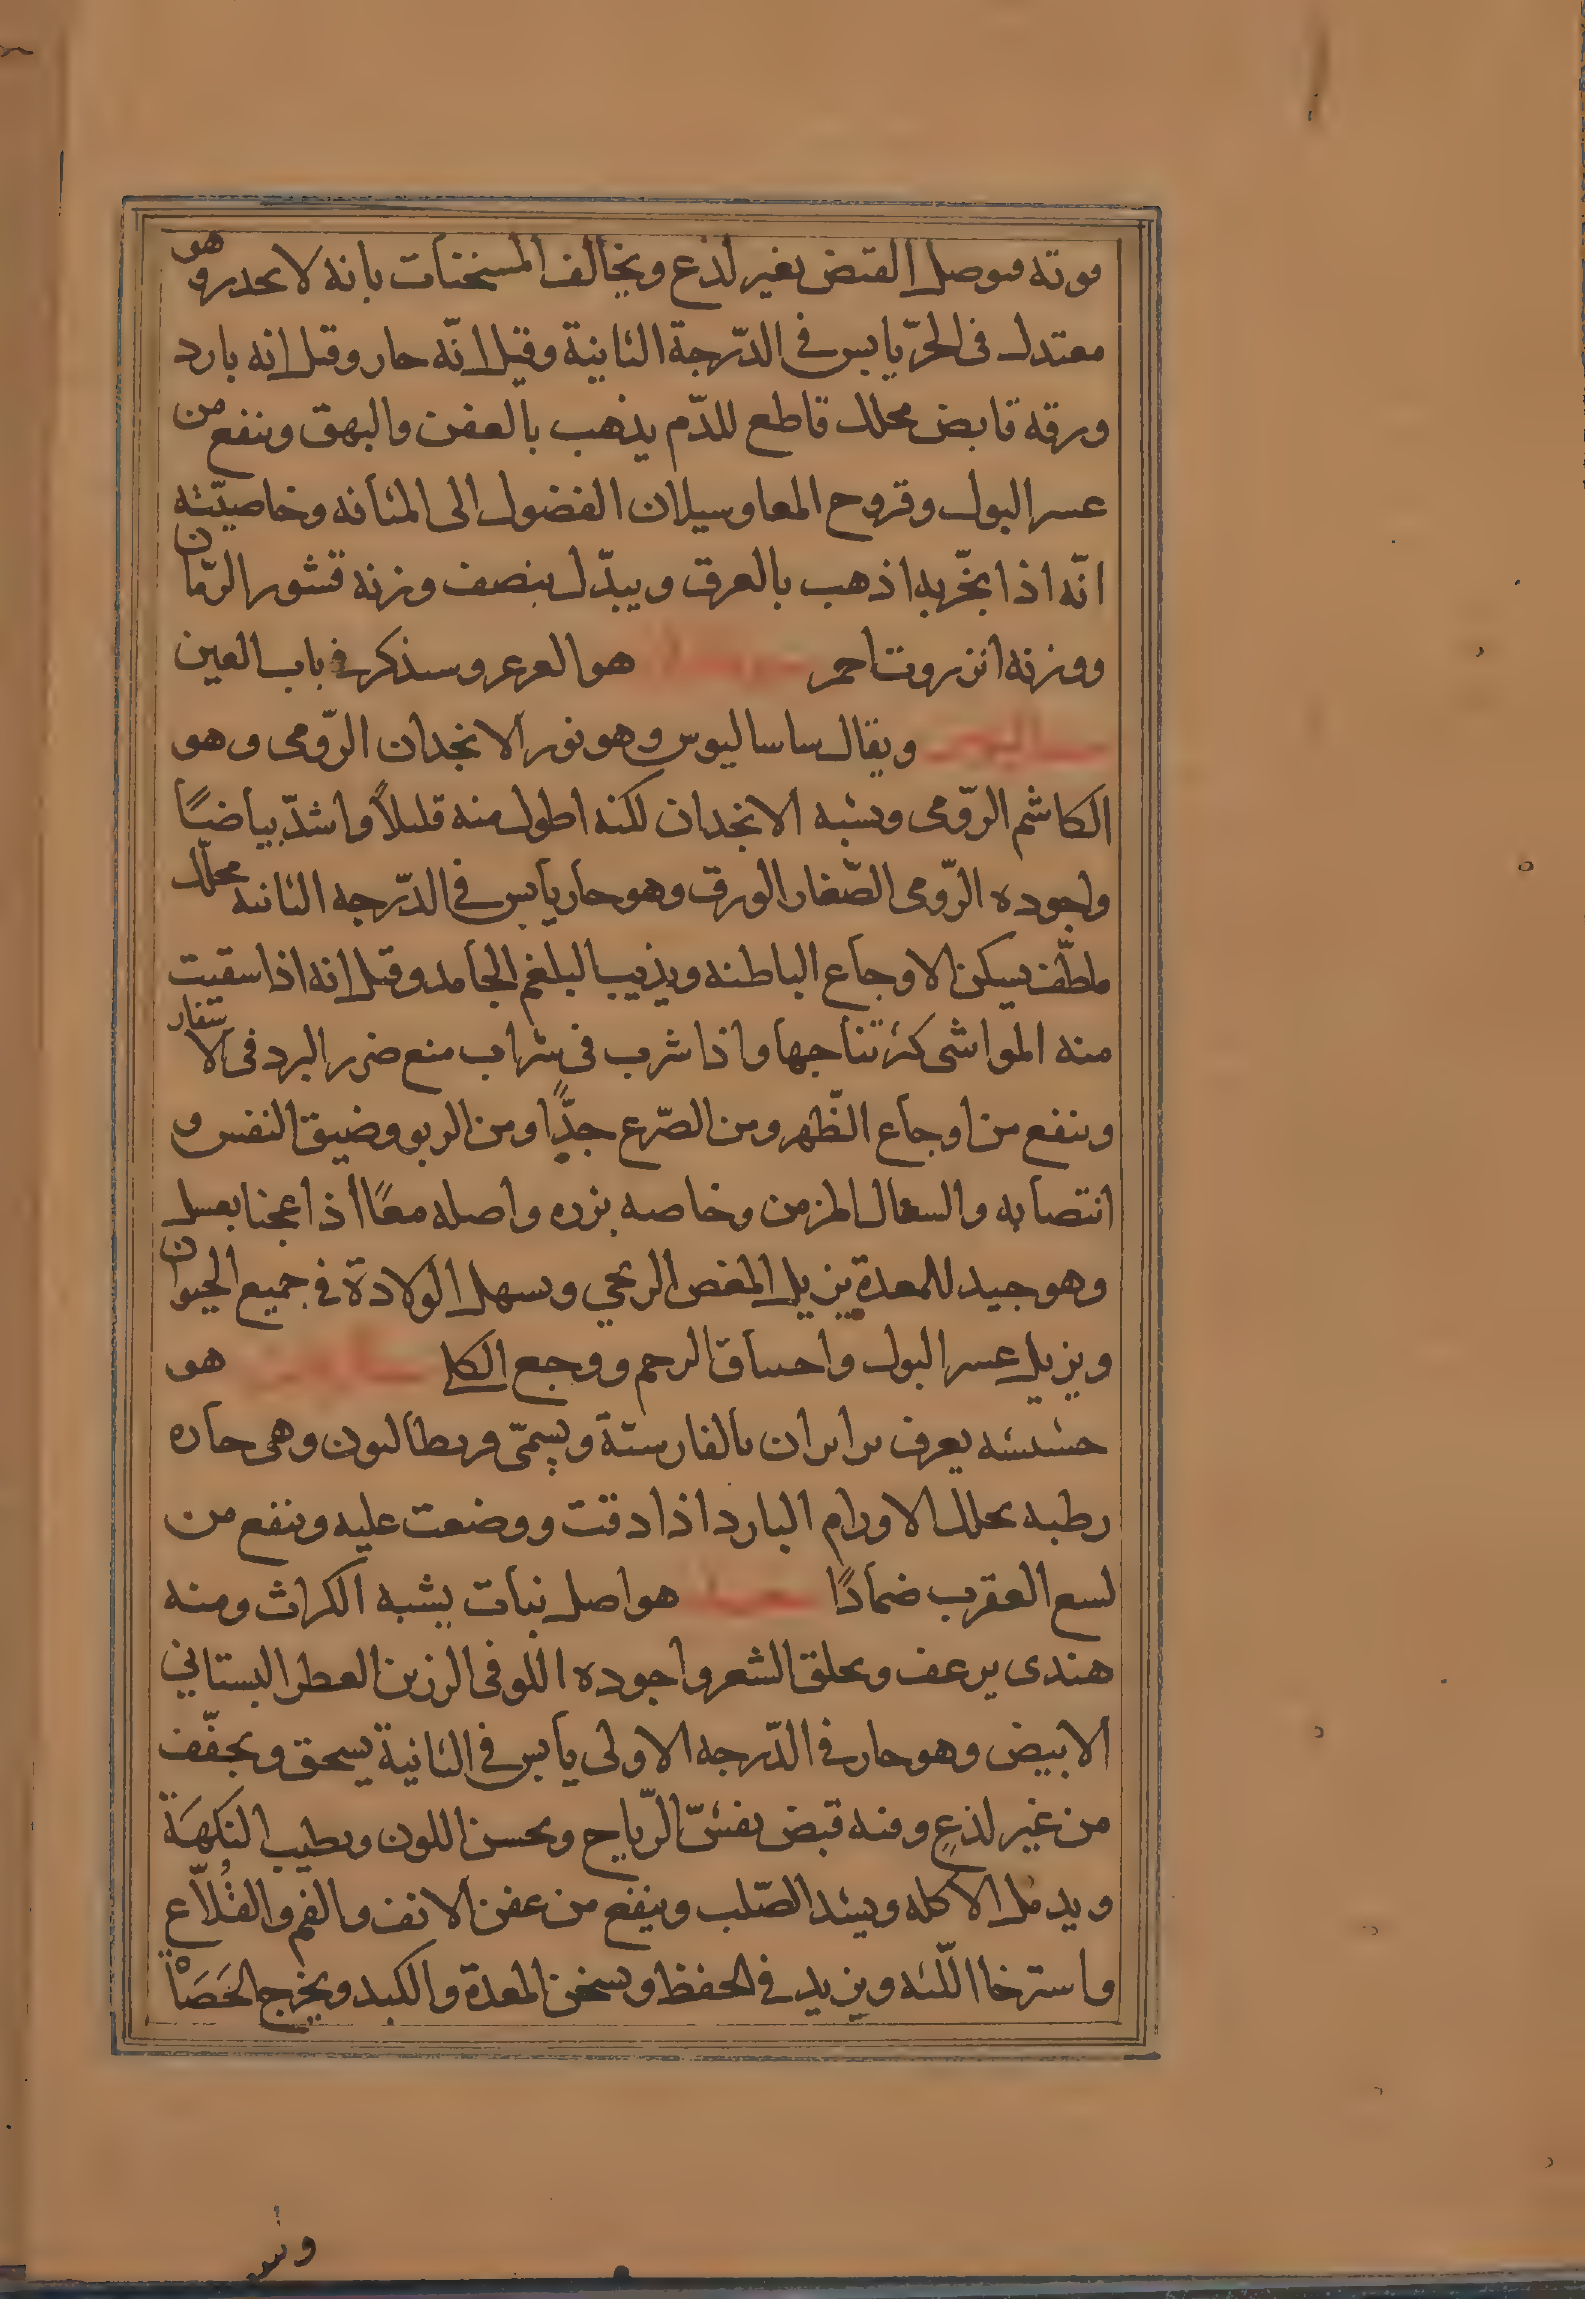 موته موصل القبض بغير لذع ويخالف المسخنات بانه لا يحدر وهو
معتدل فى الحرّ يابس فى الدّرجة الثانية وقيل انّه حار وقيل انه بارد
ورقه قابض محلل قاطع للدّم يذهب بالعفن والبهق وينفع من
عسر البول وقروح المعا وسيلان الفضول الى المثانه وخاصيّته
انّه اذا بخّر به اذهب بالعرق ويبدّل بنصف وزنه قشور الرّمان
ووزنه انزروت احمر هو العرعر وسنذكر فى باب العين
ويقال ساساليوس وهو نور الانجدان الرّومى وهو
الكاشم الرّومى ويشبه الانجدان لكنه اطول منه قليلاً واشدّ بياضيًا
واجوده الرّومى الصّغار الورق وهو حار يابس فى الدّرجه الثانيه محلّل
ملطّف يسكن الاوجاع الباطنه ويذيب البلغم الجامد وقيل انه اذا سقيت
منه المواشى كثر نتاجها واذا شرب فى شراب منع ضرر البرد فى الاسفار
وينفع من اوجاع الظّهر ومن الصّرع جدًّا ومن الربو وضيق النفس و
انتصابه والسعال المزمن وخاصه بزره واصله معًا اذا عجنا بعسل
وهو جيد للمعدة يزيل المغص الريحي ويسهل الولادة فى جميع الحيوان
ويزيل عسر البول واحساق الرحم ووجع الكلا هو
حشيشه يعرف برابران بالفارسيّة ويسمّى فريطاليون وهى حاره
رطبه يحلل الاورام البارد اذا دقت ووضعت عليه وينفع من
لسع العقرب ضمادًا هو اصل نبات يشبه الكراث ومنه
هندى يرعف ويحلق الشعر واجوده اللوفى الرزين العطر البستاني
الابيض وهو حار فى الدّرجه الاولى يابس فى الثانية يسحق ويجفّف
من غير لذع وفيه قبض يفشّ الرّياح ويحسن اللون ويطيب النكهَة
ويدمل الاكله ويشد الصّلب وينفع من عفن الانف والفم والقُلاّع
واسترخا اللّثه ويزيد فى الحفظ ويسخن المعدة والكبد ويخرج الحَصَاة